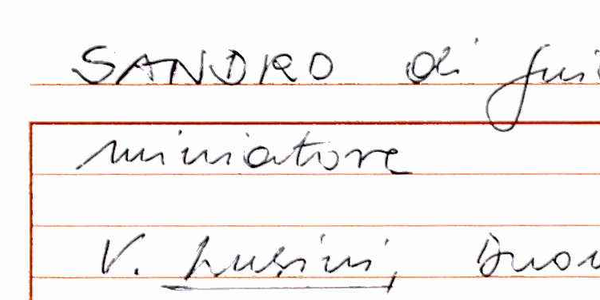 SANDRO di
miniatore
V. Lusini,